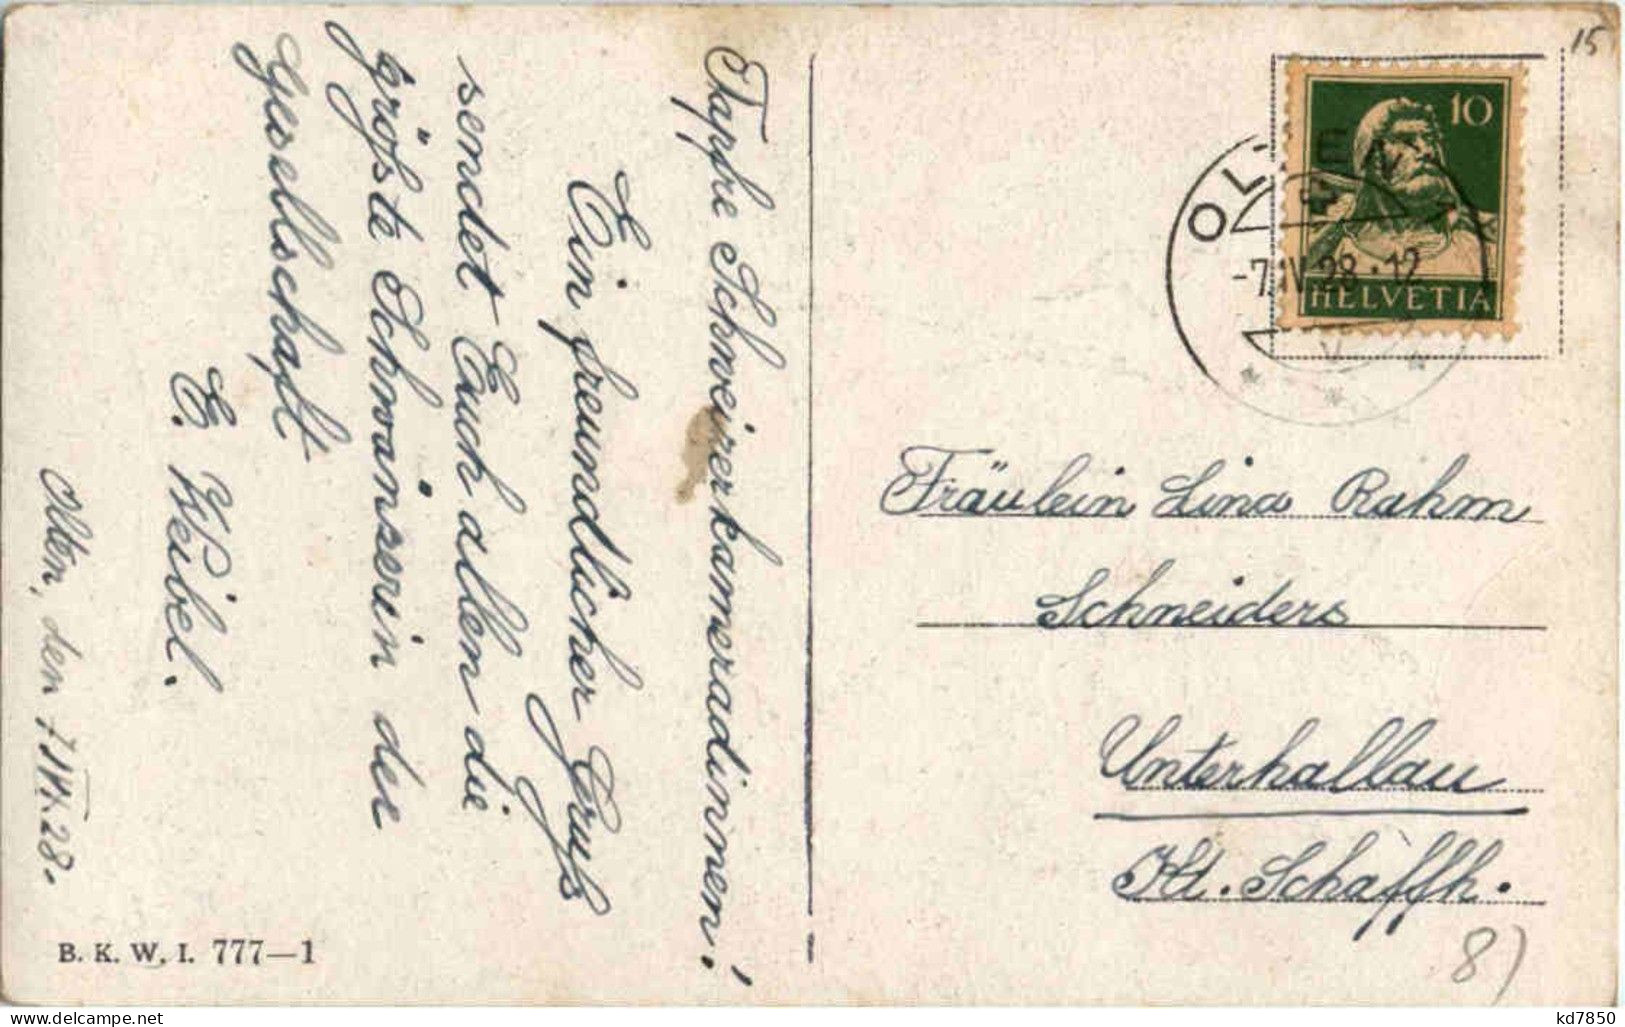 Tapfre Schweizerkameradinnen!
Ein freundlicher Gruß
sendet Euch allen die
größte Schwänzerin der
Gesellschaft
E. Weibel.
Olten, den 7. IV. 28.
B. K. W. I. 777—1
15
10
HELVETIA
OLTEN
-7.IV.28.-12
V
Fräulein Lina Rahm
Schneiders
Unterhallau
Kt. Schaffh.
8)
kd7850